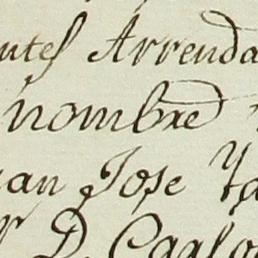 ntes Arrenda
nombre
an Jose Ya
D. Carlo